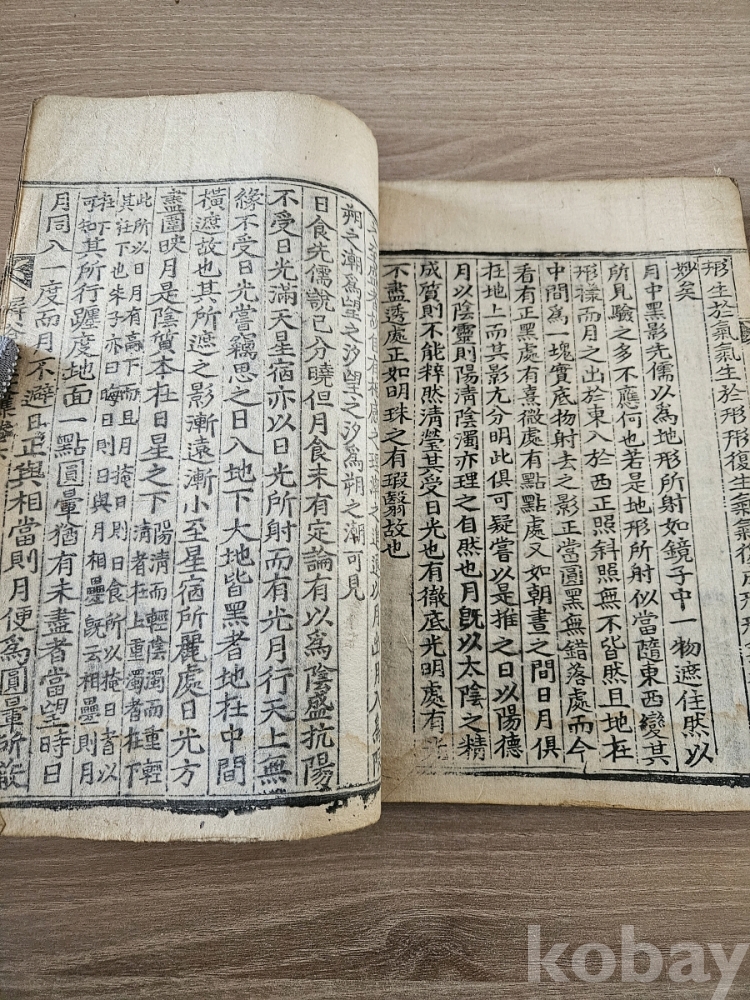 形生於氣氣生於形形復生氣氣復
妙矣
月中黑影先儒以為地形所射如鏡子中一物遮住然以
所見驗之多不應何也若是地形所射似當隨東西變其
形樣而月之出於東入於西正照斜照無不皆然且地在
中間為一塊實底物射去之影正當圓黑無錯落處而今
看有正黑處有熹微處有點點處又如朝晝之間日月俱
在地上而其影尤分明此俱可疑嘗以是推之日以陽德
月以陰靈則陽清陰濁亦理之自然也月既以太陰之精
成質則不能粹然清瑩其受日光也有徹底光明處有
不盡透處正如明珠之有瑕翳故也
朔之潮為望之汐望之汐為朔之潮可見
日食先儒說已分曉但月食未有定論有以為陰盛抗陽
不受日光滿天星宿亦以日光所射而有光月行天上無
緣不受日光嘗竊思之日入地下大地皆黑者地在中間
橫遮故也其所遮之影漸遠漸小至星宿所麗處日光方
盡圍映月是陰質本在日星之下陽清而輕陰濁而重輕
清者在上重濁者在下
此所以日月有高下而月掩日則日食所以掩日者以
其在下也朱子亦曰晦日則日與月相疊既云相疊則月
在下可知
其所行躔度地面一點圓暈猶有未盡者當望時日
月同入一度而月不避日正與相當則月便為圓暈所蔽